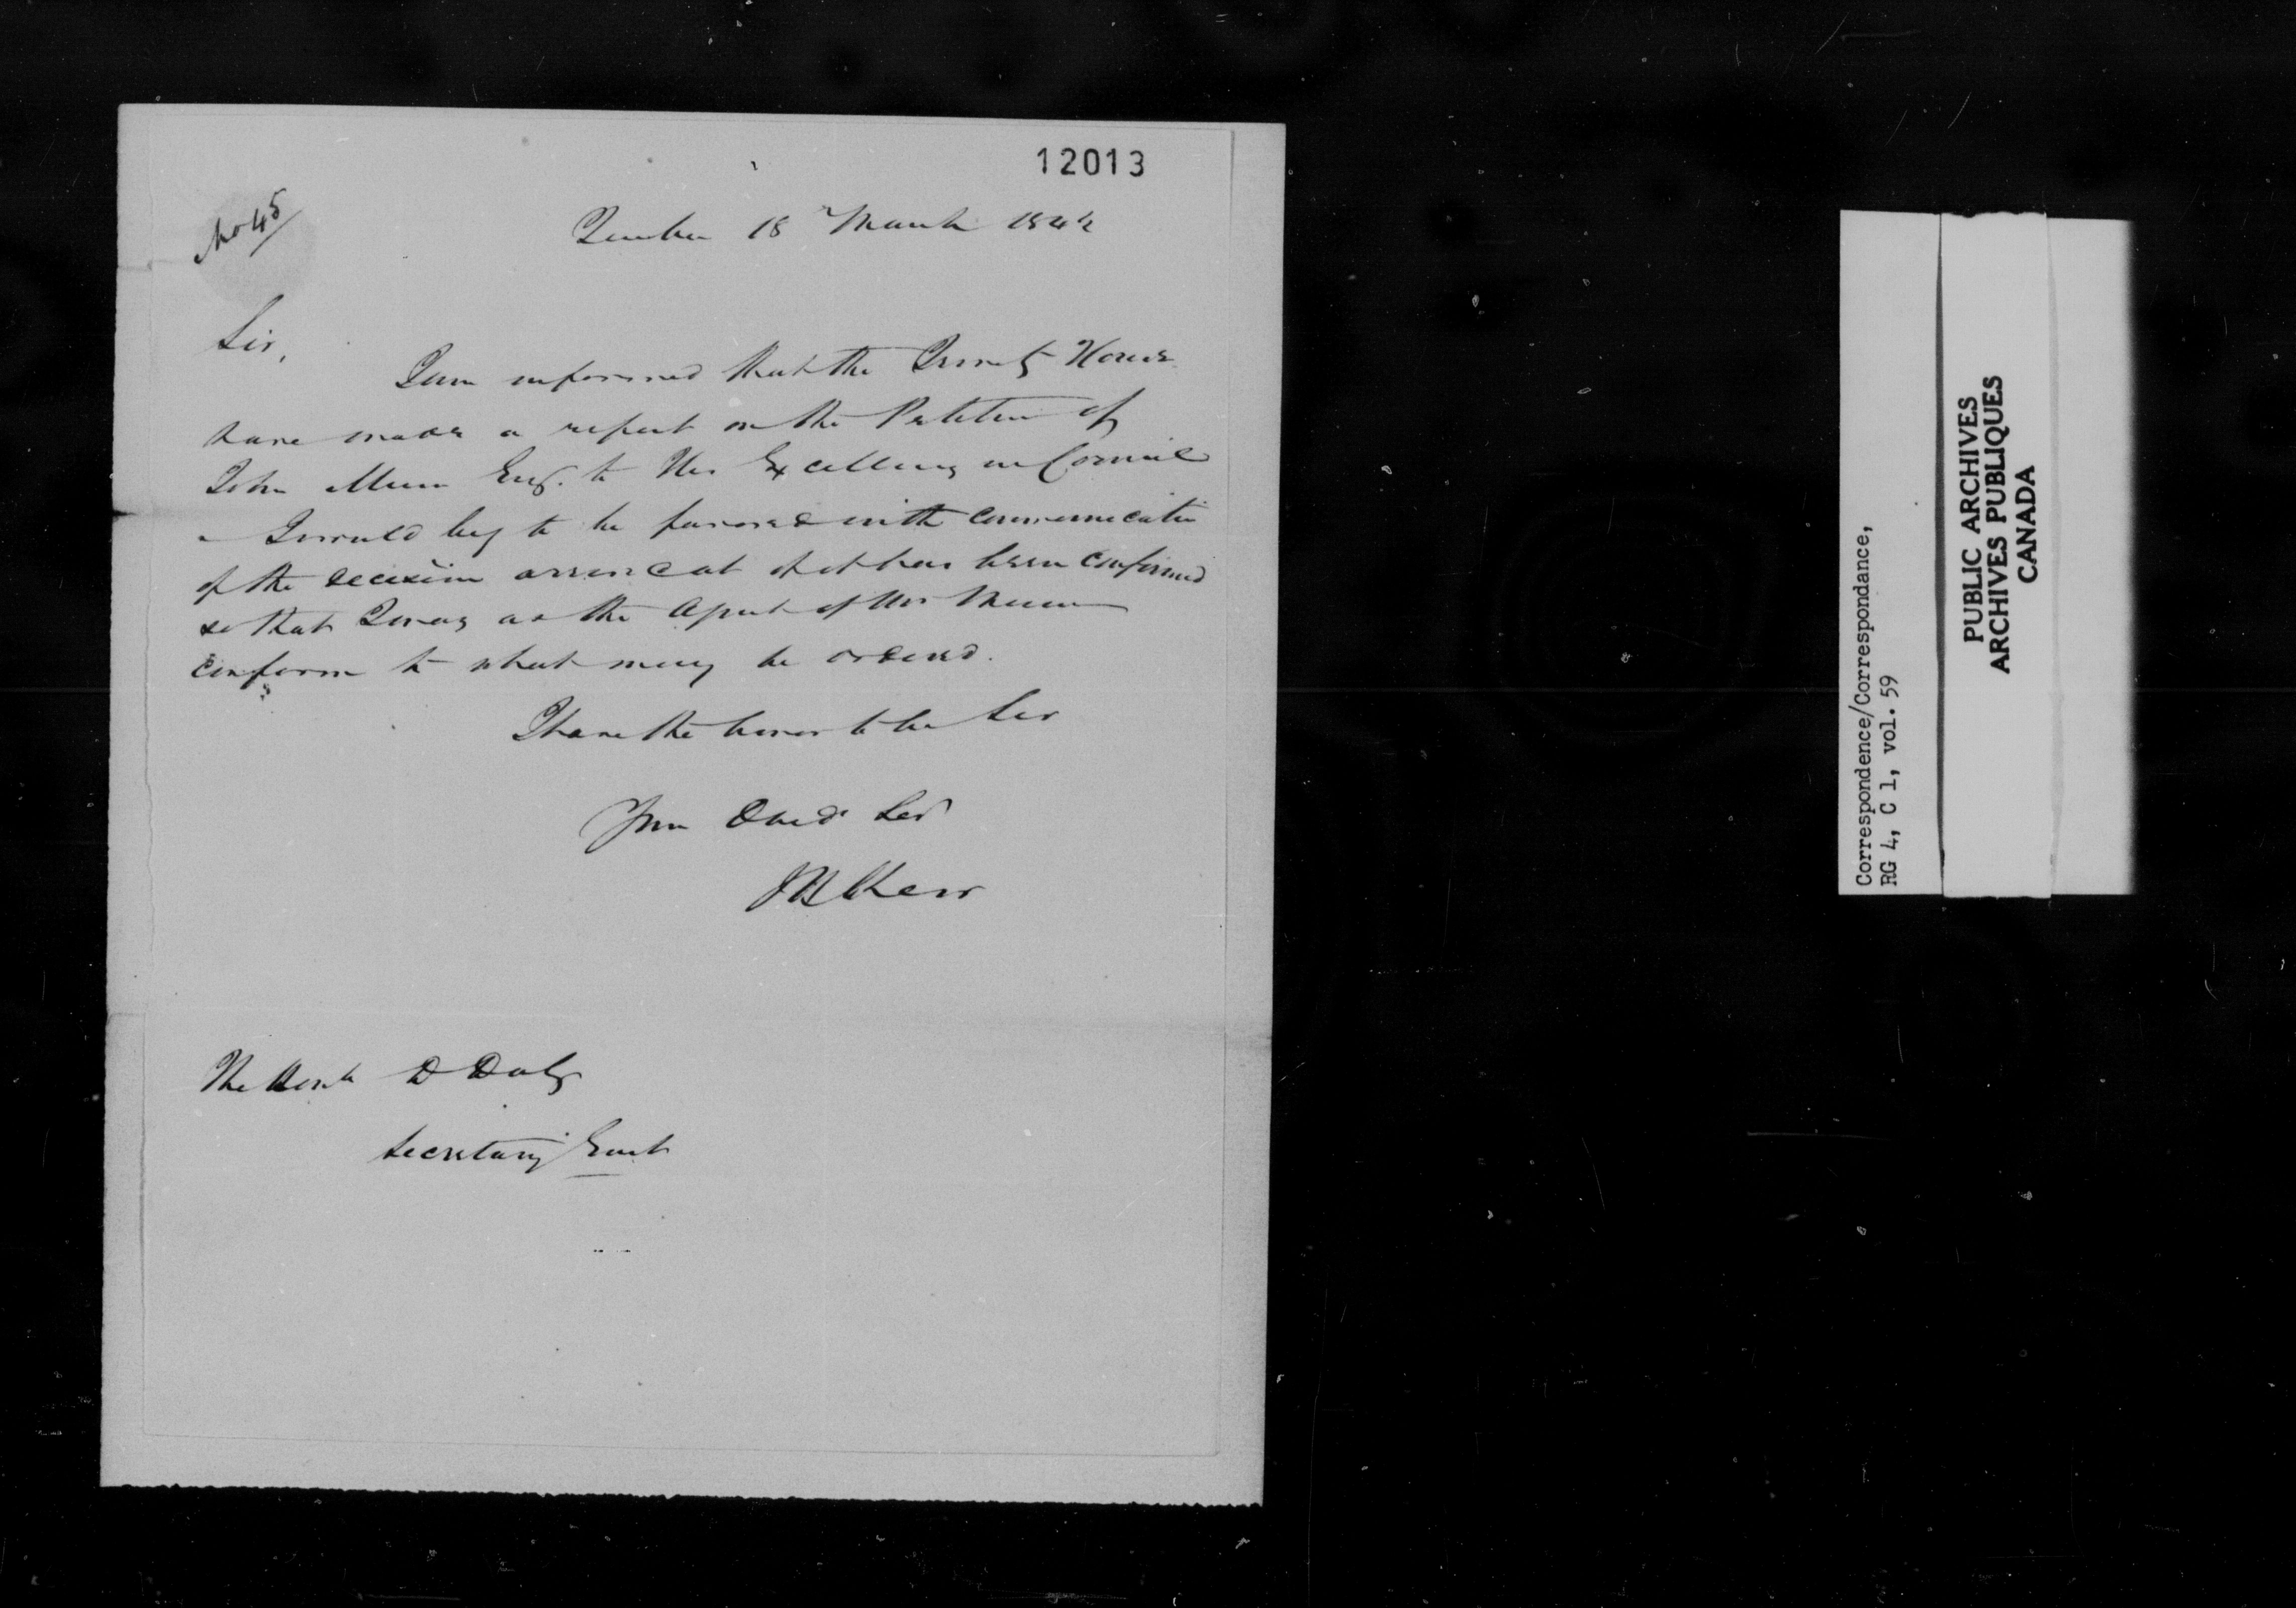 12013
No 45
Quebec 18 March 1842
Sir,
I am informed that the Trinity House
have made a report on the Petition of
John Munn Esq. to His Excellency in Council
- I would beg to be favored with communicatio
of the decision and if it has been confirmed
so that I may as the Agent of Mr Munn
conform to what may be ordered.
I have the honor to be Sir
Your Obed Ser
Kerr
The Honb D Daly
Secretary East
Correspondence/Correspondance,
RG 4, C 1, vol. 59
PUBLIC ARCHIVES
ARCHIVES PUBLIQUES
CANADA